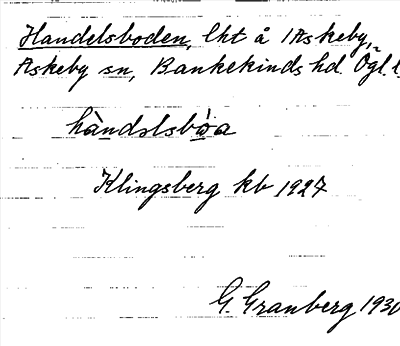 Handelsboden, lht å 1 Askeby,
Askeby sn, Bankekinds hd. Ögl. l.
hàndslsbòa
Klingsberg kb 1927
G. Granberg 1930